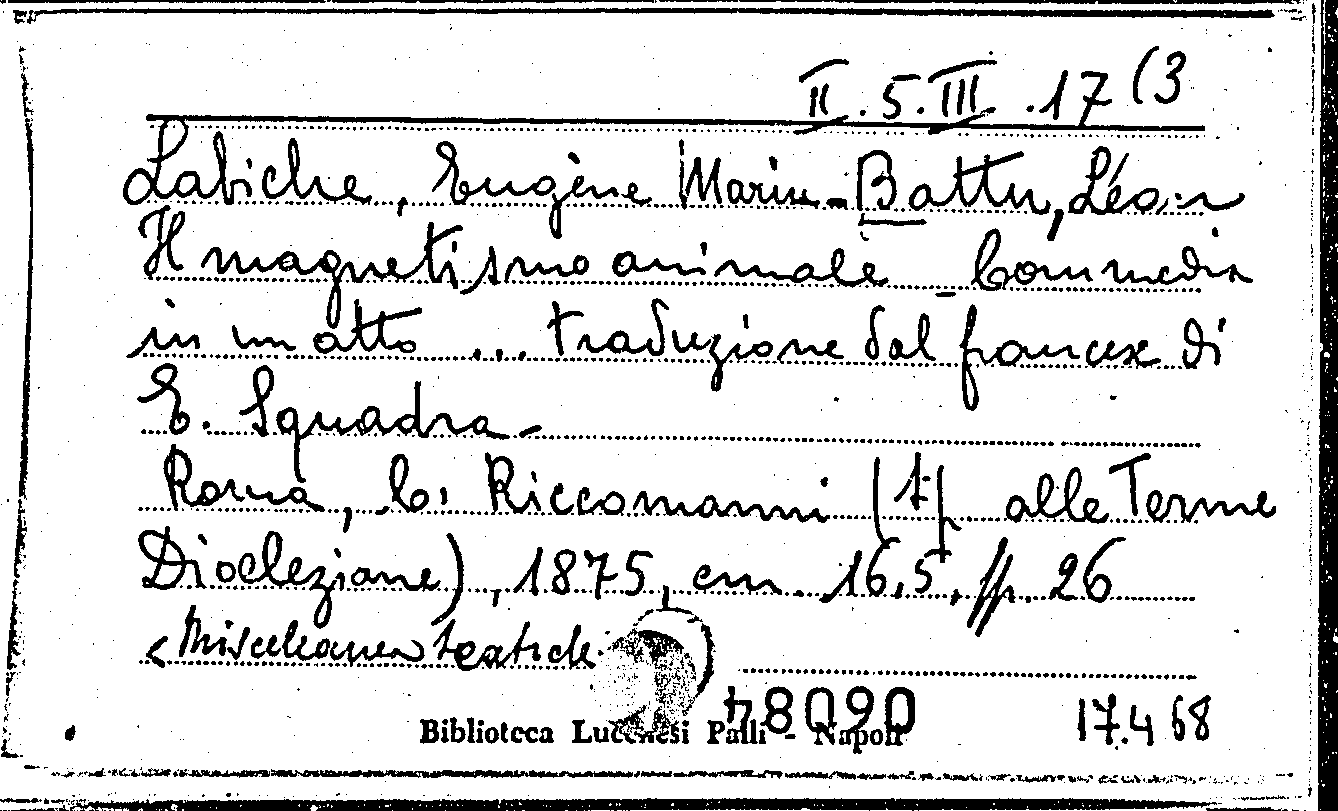 II.5.III.17(3
Labiche, Eugène Marin-Battu, Léon
Il magnetismo animale - Commedia
in un atto ... traduzione dal francese di
E. Squadra -
Roma, C. Riccomanni (tip alle Terme
Diocleziane), 1875, cm. 16,5, pp. 26
<Miscellanea teatrale
48090
Biblioteca Lucchesi Palli - Napoli
17.4 68